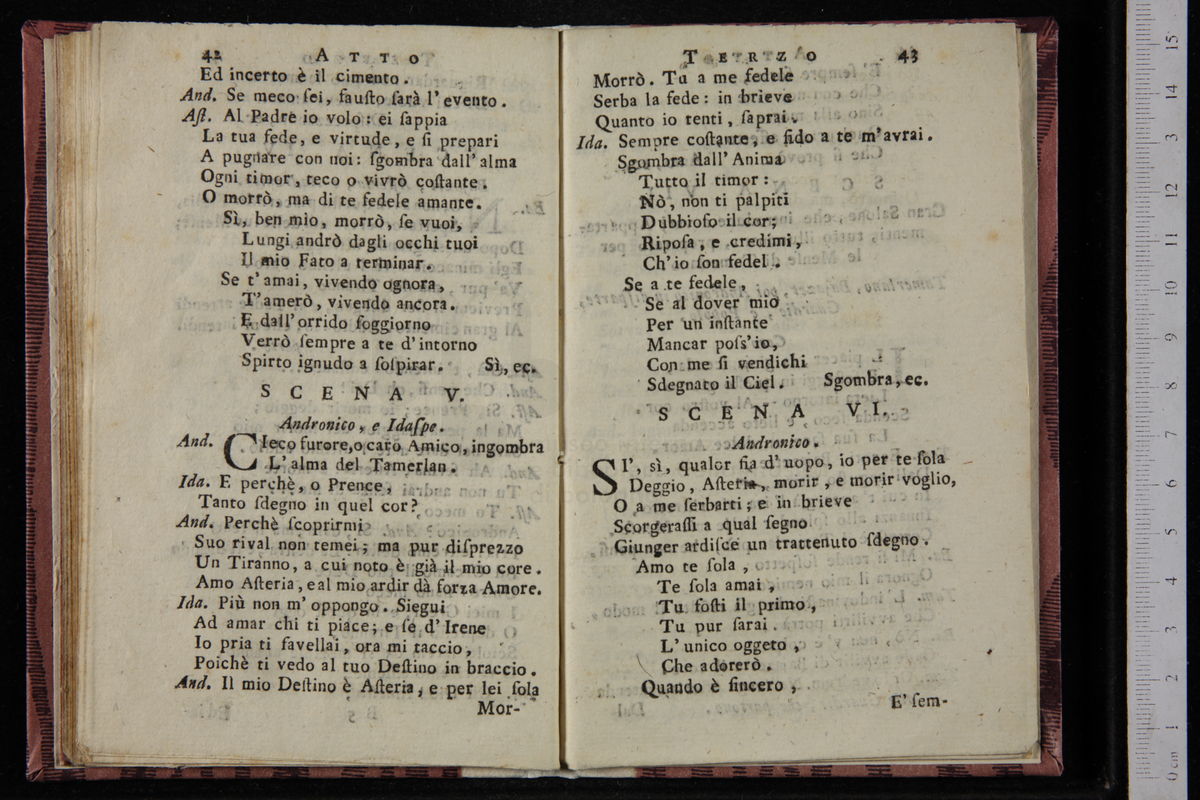 42 ATTO
Ed incerto è il cimento.
And. Se meco ſei, fauſto ſarà l'evento.
Aſt. Al Padre io volo: ei ſappia
La tua fede, e virtude, e ſi prepari
A pugnare con noi: ſgombra dall'alma
Ogni timor, teco o vivrò coſtante.
O morrò, ma di te fedele amante.
Sì, ben mio, morrò, ſe vuoi,
Lungi andrò dagli occhi tuoi
Il mio Fato a terminar.
Se t'amai, vivendo ognora,
T'amerò, vivendo ancora.
E dall'orrido ſoggiorno
Verrò ſempre a te d'intorno
Spirto ignudo a ſoſpirar. Sì, ec.
SCENA V.
Andronico, e Idaſpe.
And. CIeco furore, o caro Amico, ingombra
L'alma del Tamerlan.
Ida. E perchè, o Prence,
Tanto ſdegno in quel cor?
And. Perchè ſcoprirmi
Suo rival non temei; ma pur diſprezzo
Un Tiranno, a cui noto è già il mio core.
Amo Aſteria, e al mio ardir dà forza Amore.
Ida. Più non m'oppongo. Siegui
Ad amar chi ti piace; e ſe d'Irene
Io pria ti favellai, ora mi taccio,
Poichè ti vedo al tuo Deſtino in braccio.
And. Il mio Deſtino è Aſteria, e per lei ſola
Mor-
TERZO 43
Morrò. Tu a me fedele
Serba la fede: in brieve
Quanto io tenti, ſaprai.
Ida. Sempre coſtante, e fido a te m'avrai.
Sgombra dall'Anima
Tutto il timor:
Nò, non ti palpiti
Dubbioſo il cor;
Ripoſa, e credimi,
Ch'io ſon fedel.
Se a te fedele,
Se al dover mio
Per un inſtante
Mancar poſs'io,
Con me ſi vendichi
Sdegnato il Ciel. Sgombra, ec.
SCENA VI.
Andronico.
SI', sì, qualor fia d'uopo, io per te ſola
Deggio, Aſteria, morir, e morir voglio,
O a me ſerbarti; e in brieve
Scorgeraſſi a qual ſegno
Giunger ardiſce un trattenuto ſdegno.
Amo te ſola,
Te ſola amai,
Tu foſti il primo,
Tu pur ſarai
L'unico oggeto,
Che adorerò.
Quando è ſincero,
E' ſem-
0 cm 1 2 3 4 5 6 7 8 9 10 11 12 13 14 15